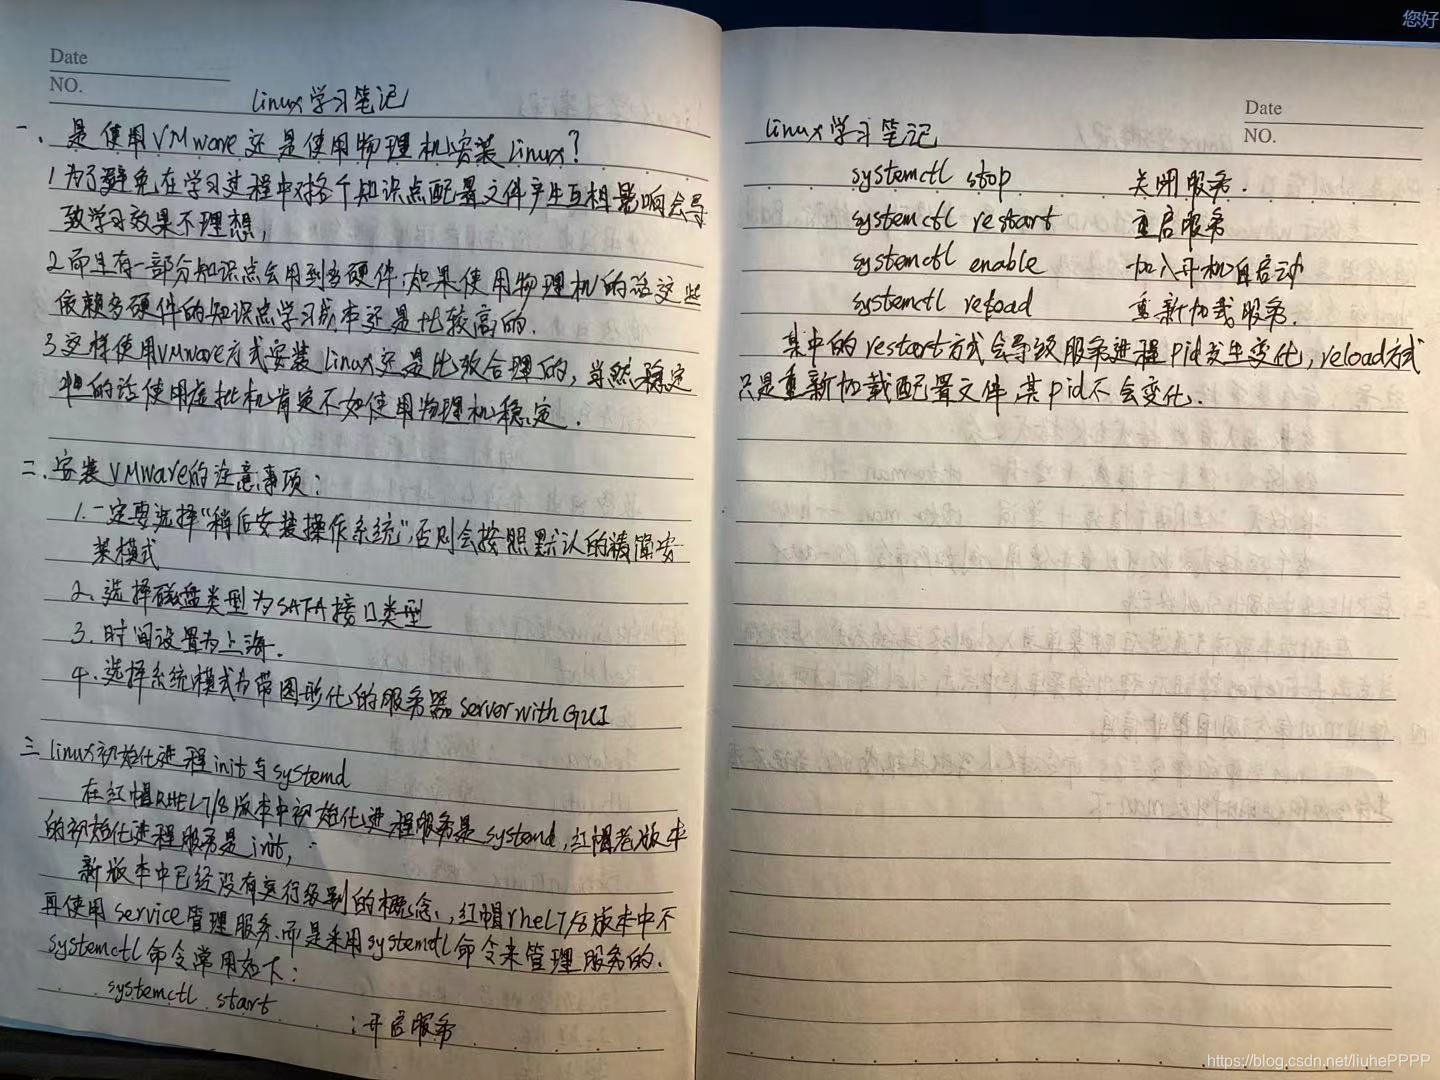 Date
NO.
linux学习笔记
一、是使用VMware还是使用物理机安装linux?
1为了避免在学习过程中对各个知识点配置文件产生互相影响会导
致学习效果不理想,
2而且有一部分知识点会用到多硬件,如果使用物理机的话这些
依赖多硬件的知识点学习成本还是比较高的.
3这样使用VMware方式安装linux还是比较合理的,当然稳定
性的话使用虚拟机肯定不如使用物理机稳定.
二.安装VMware的注意事项:
1.一定要选择"稍后安装操作系统",否则会按照默认的精简安
装模式
2.选择磁盘类型为SATA接口类型
3.时间设置为上海.
4.选择系统模式为带图形化的服务器server with GUI
三linux初始化进程init与systemd
在红帽RHEL7/8版本中初始化进程服务是systemd,红帽老版本
的初始化进程服务是init,
新版本中已经没有运行级别的概念,红帽rhel7/8版本中不
再使用service管理服务.而是采用systemctl命令来管理服务的.
systemctl命令常用如下:
systemctl start :开启服务
Date
NO.
linux学习笔记
systemctl stop 关闭服务.
systemctl restart 重启服务
systemctl enable 加入开机自启动
systemctl reload 重新加载服务.
其中的restart方式会导致服务进程pid发生变化,reload方式
只是重新加载配置文件,其pid不会变化.
您好
https://blog.csdn.net/liuhePPPP